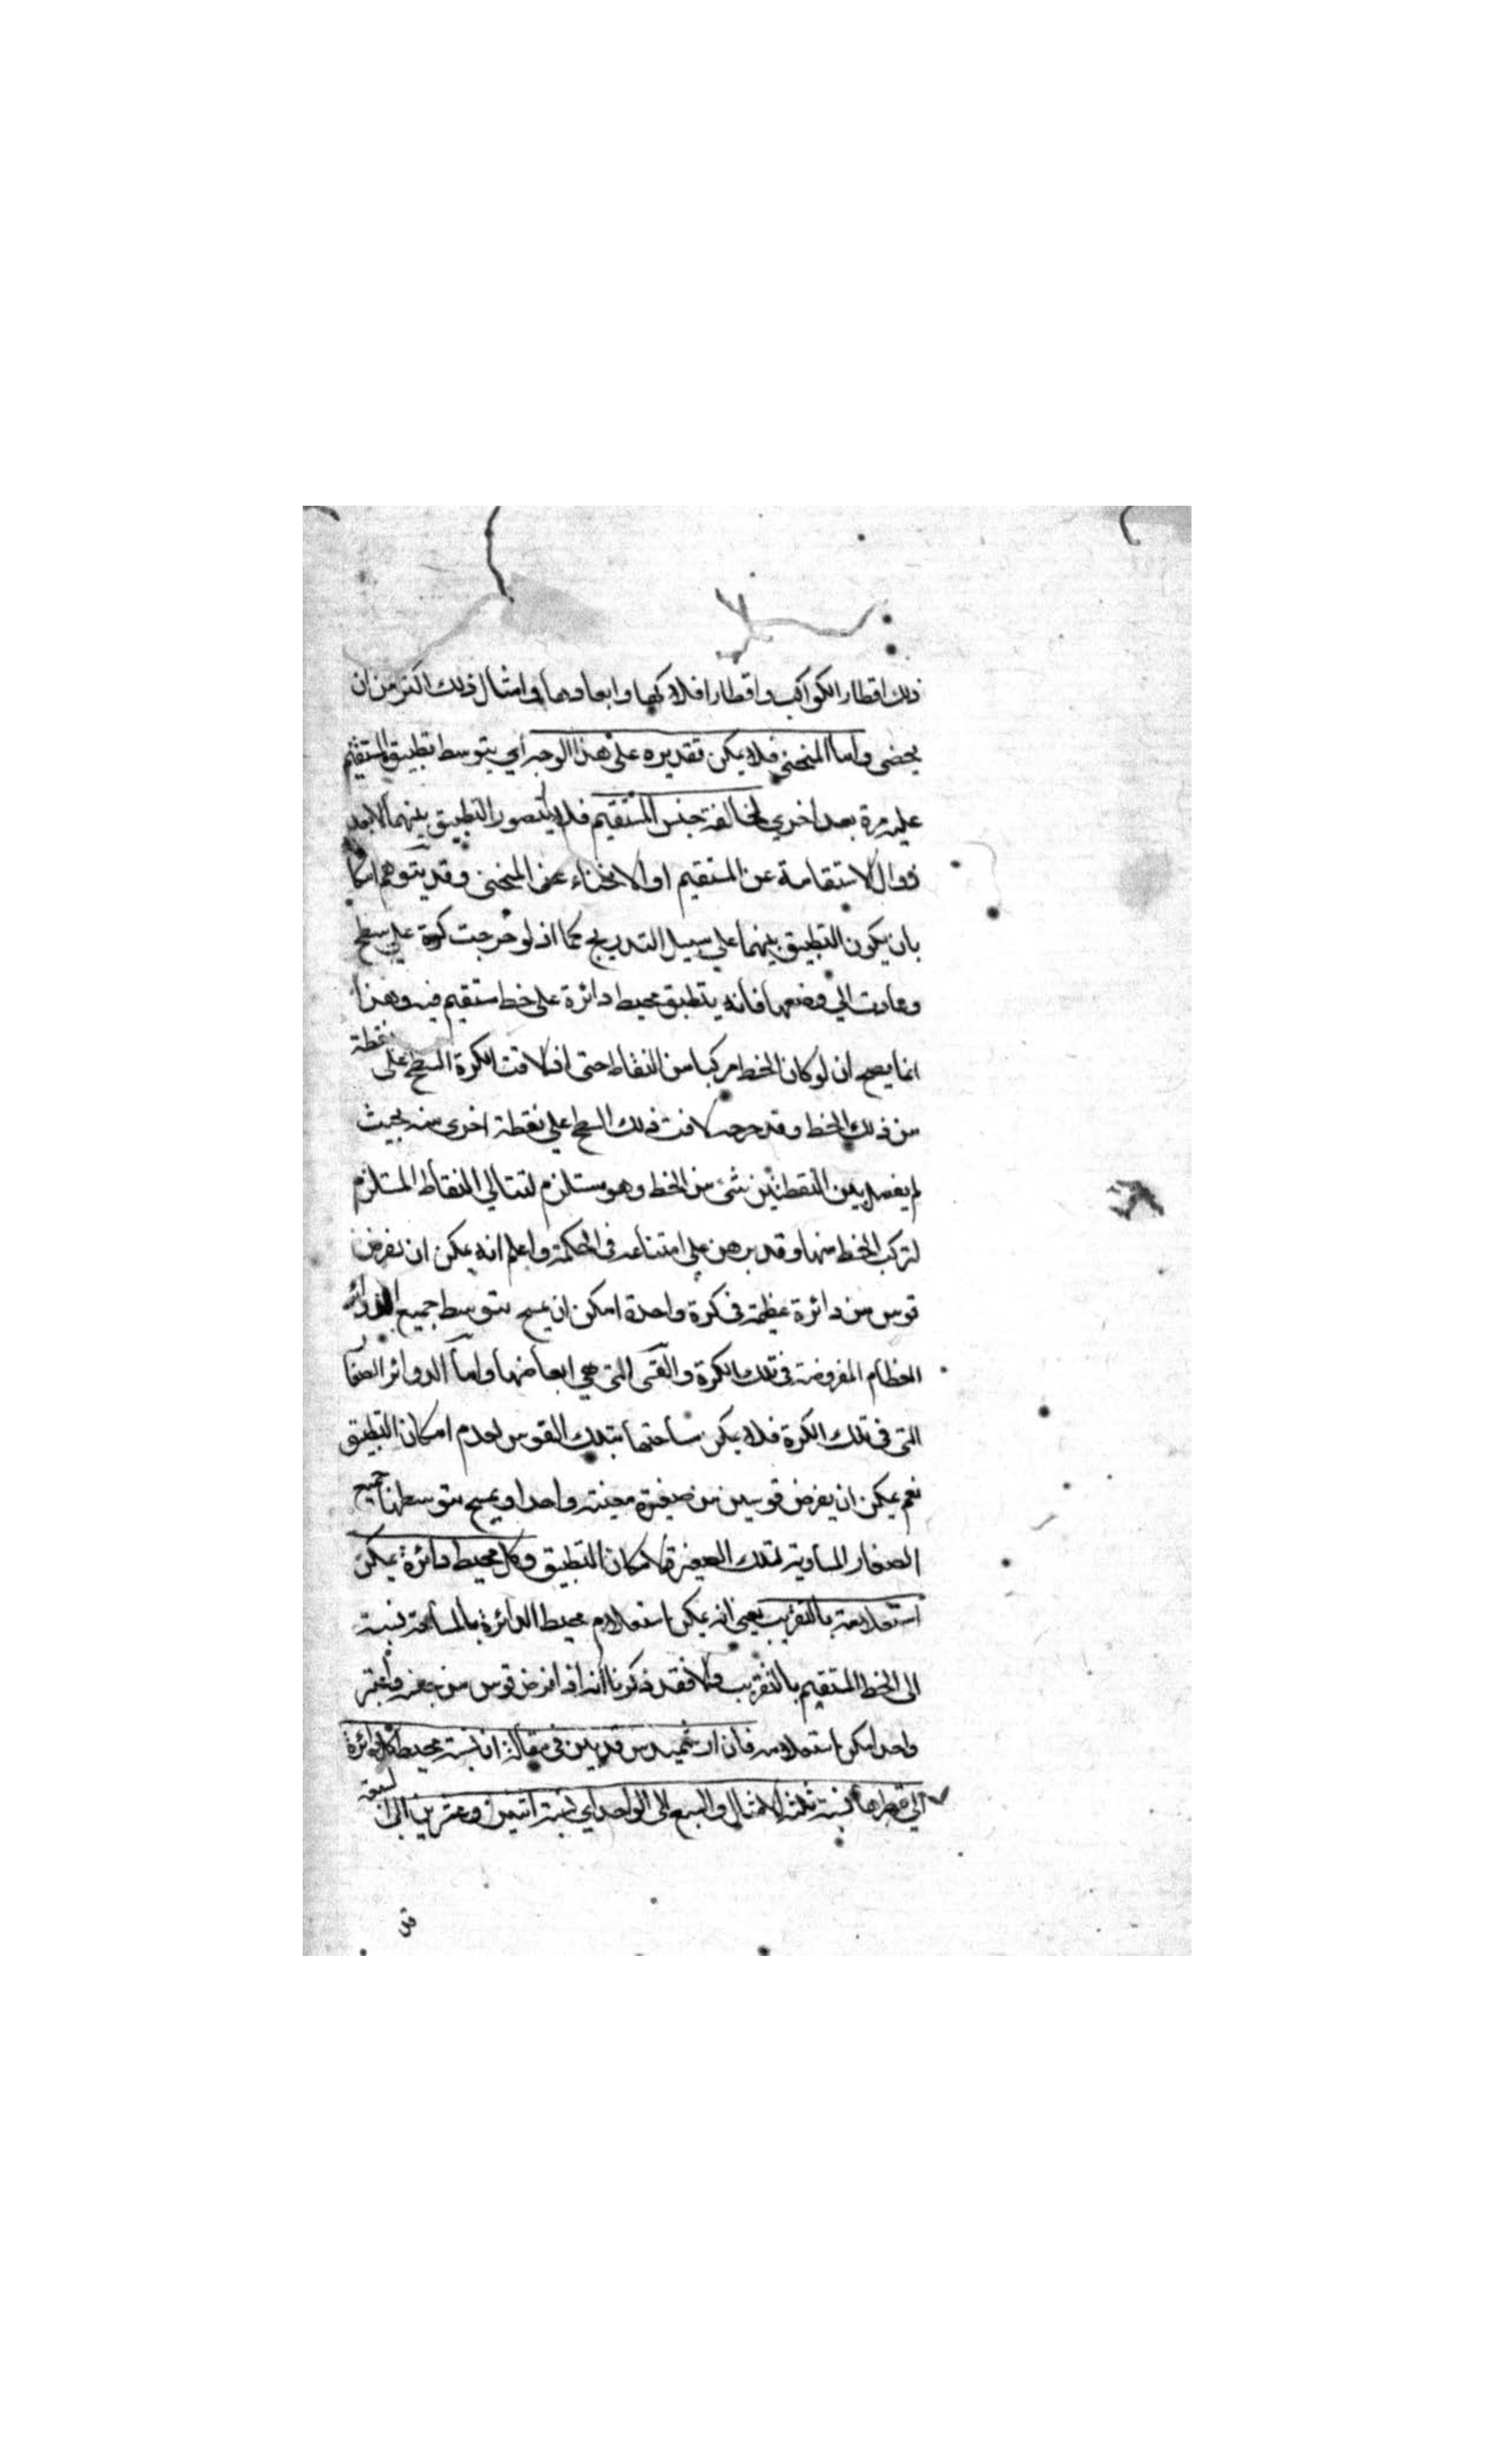 ذلك اقطار الكواكب واقطار افلاكها وابعادها وامثال ذلك اكثر من ان
يحصى واما المنحنى فلا يمكن تقديره على هذا الوجه اي بتوسط تطبيق المستقيم
عليه مرة بعد اخري لمخالفة جنس المستقيم فلا يتصور التطبيق بينهما الا بعد
زوال الاستقامة عن المستقيم او الانحناء عن المنحنى وقد يتوهم امكا
بان يكون التطبيق بينهما علي سبيل التدريج كما اذ لو حرجت كرة علي سطح
وعادت الي وضعها فانه ينطبق محيط دائرة على خط مستقيم فيه وهذا
انما يصح ان لو كان الخط مركبا من النقاط حتى اذ لاقت الكرة السطح على نقطة
من ذلك الخط وقد لاقت ذلك السطح علي نقطة اخرى منه بحيث
لم يفصل بين النقطتين شئ من الخط وهو مستلزم لتتالي النقاط المستلزم
لتركب الخط منها وقد برهن علي امتناعه في الحكمة واعلم انه يمكن ان يفرض
قوس من دائرة عظيمة في كرة واحدة امكن ان يمسح بتوسط جميع الدوائر
العظام المفروضة في تلك الكرة والقسى التي هي ابعاضها واما الدوائر الصغا
التى في تلك الكرة فلا يمكن مساحتها بتلك القوس لعدم امكان التطبيق
نعم يمكن ان يفرض قوسين من صغيرة معينة واحدا ويمسح بتوسطها جميع
الصغار المساوية لتلك الصغيرة لامكان التطبيق وكل محيط دائرة يمكن
استعلامه بالتقريب يعني انه يمكن استعلام محيط الدائرة بالمساحة نسبة
الى الخط المستقيم بالتقريب والا فقد ذكرنا انه اذا فرض قوس من
واحدا امكن استعلامه فان ارشميدس قد بين في مقالة ان نسبة محيط كل دائرة
الي قطرها كنسبة ثلثة الامثال والسبع الى الواحد اي نسبة اثنين وعشرين الى سبعة